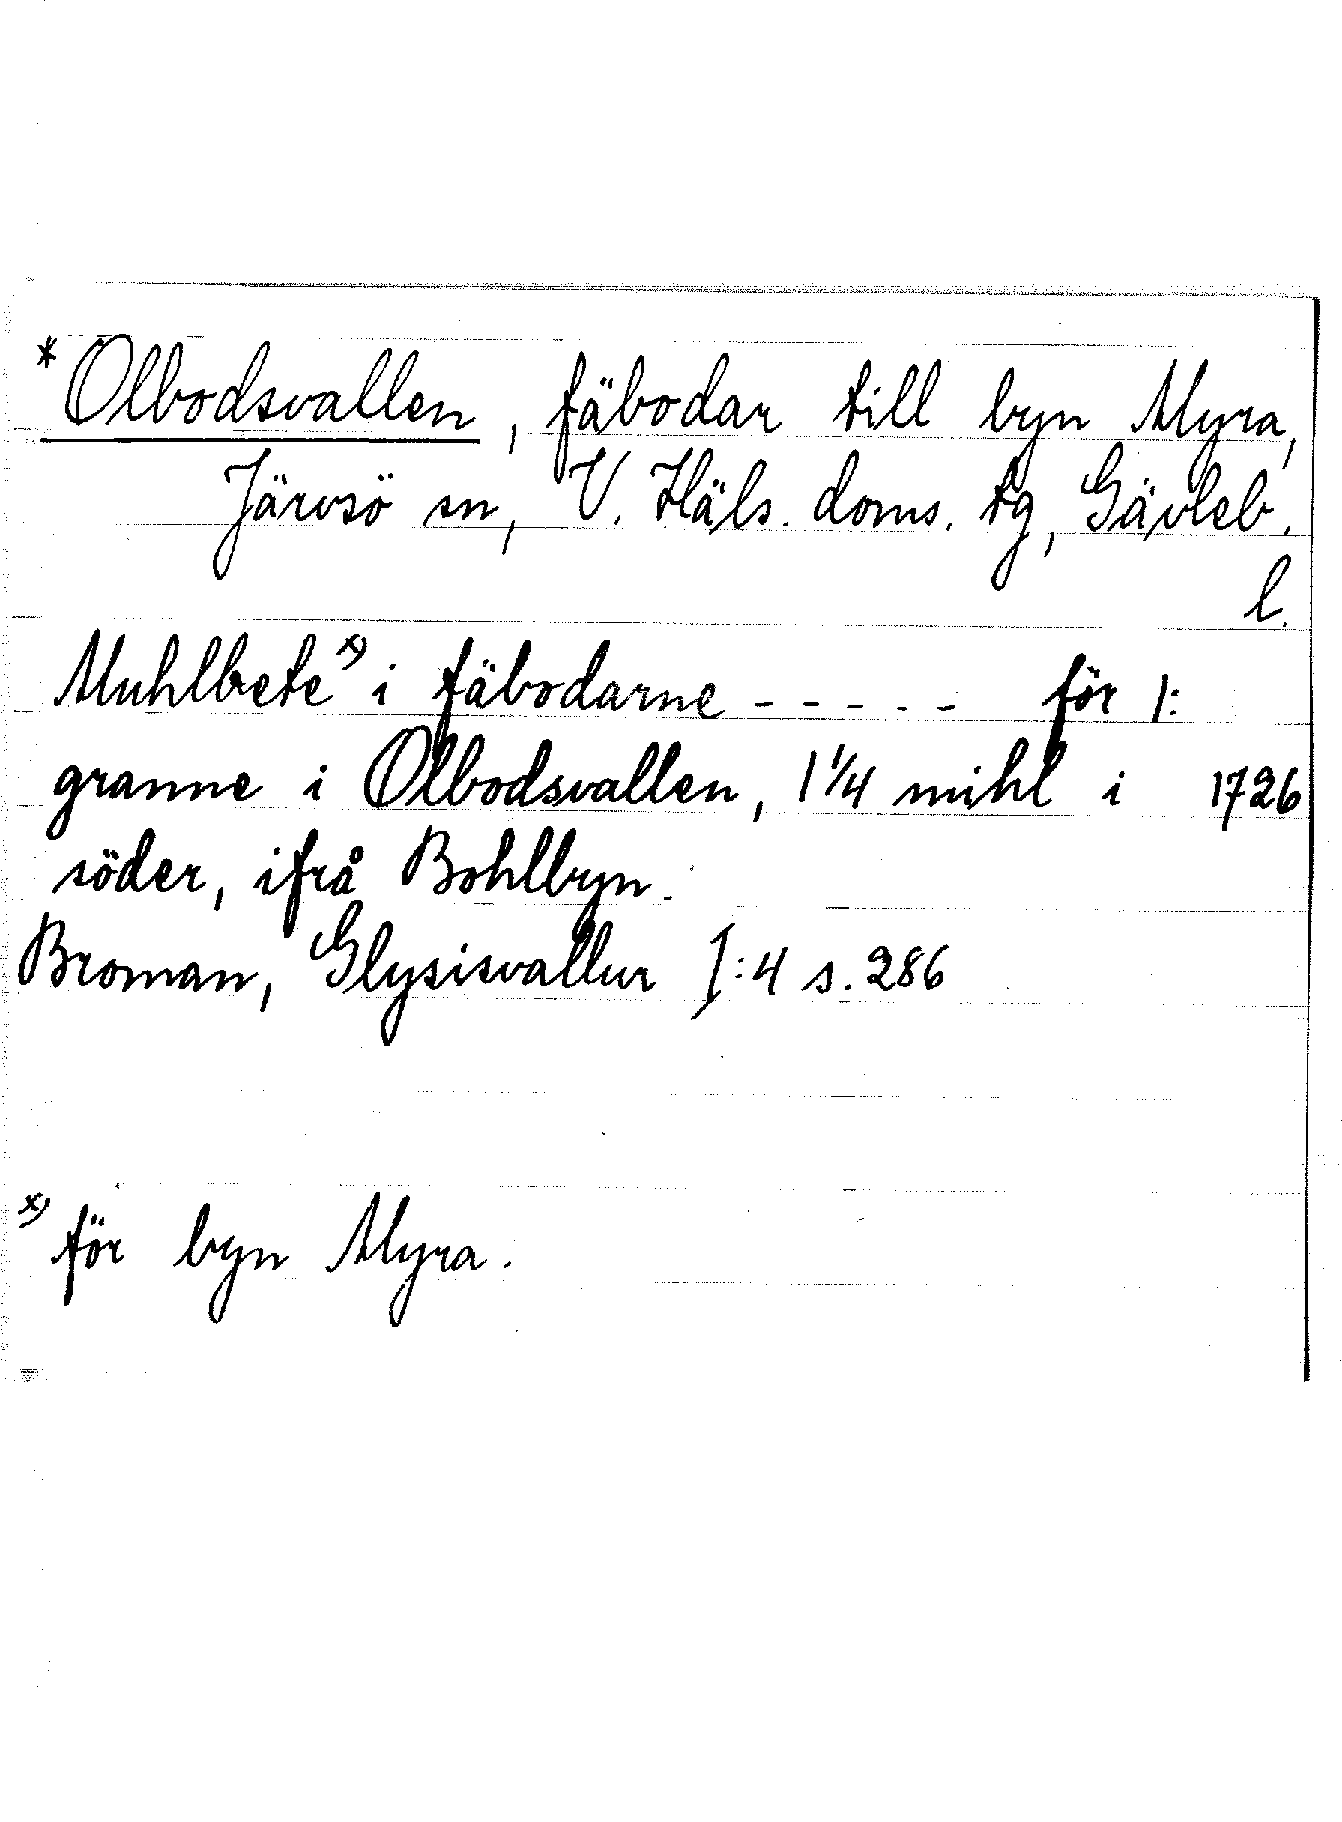 * Olbodsvallen, fäbodar till byn Myra,
Järvsö sn, V. Häls. doms. tg, Gävleb.
l.
Muhlbete x) i fäbodarne - - - - - för 1:
granne i Olbodsvallen, 1 1/4 mihl i 1726
söder, ifrå Bohlbyn.
Broman, Glysisvallur I:4 s. 286
x) för byn Myra.